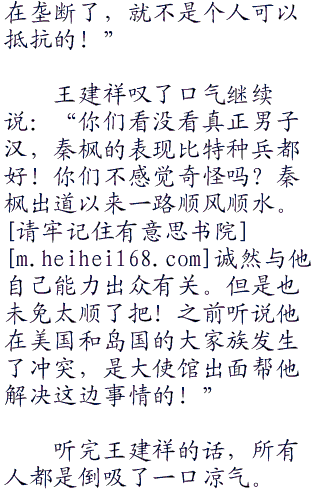 在垄断了，就不是个人可以
抵抗的！”
王建祥叹了口气继续
说：“你们看没看真正男子
汉，秦枫的表现比特种兵都
好！你们不感觉奇怪吗？秦
枫出道以来一路顺风顺水。
[请牢记住有意思书院]
[m.heihei168.com]诚然与他
自己能力出众有关。但是也
未免太顺了把！之前听说他
在美国和岛国的大家族发生
了冲突，是大使馆出面帮他
解决这边事情的！”
听完王建祥的话，所有
人都是倒吸了一口凉气。